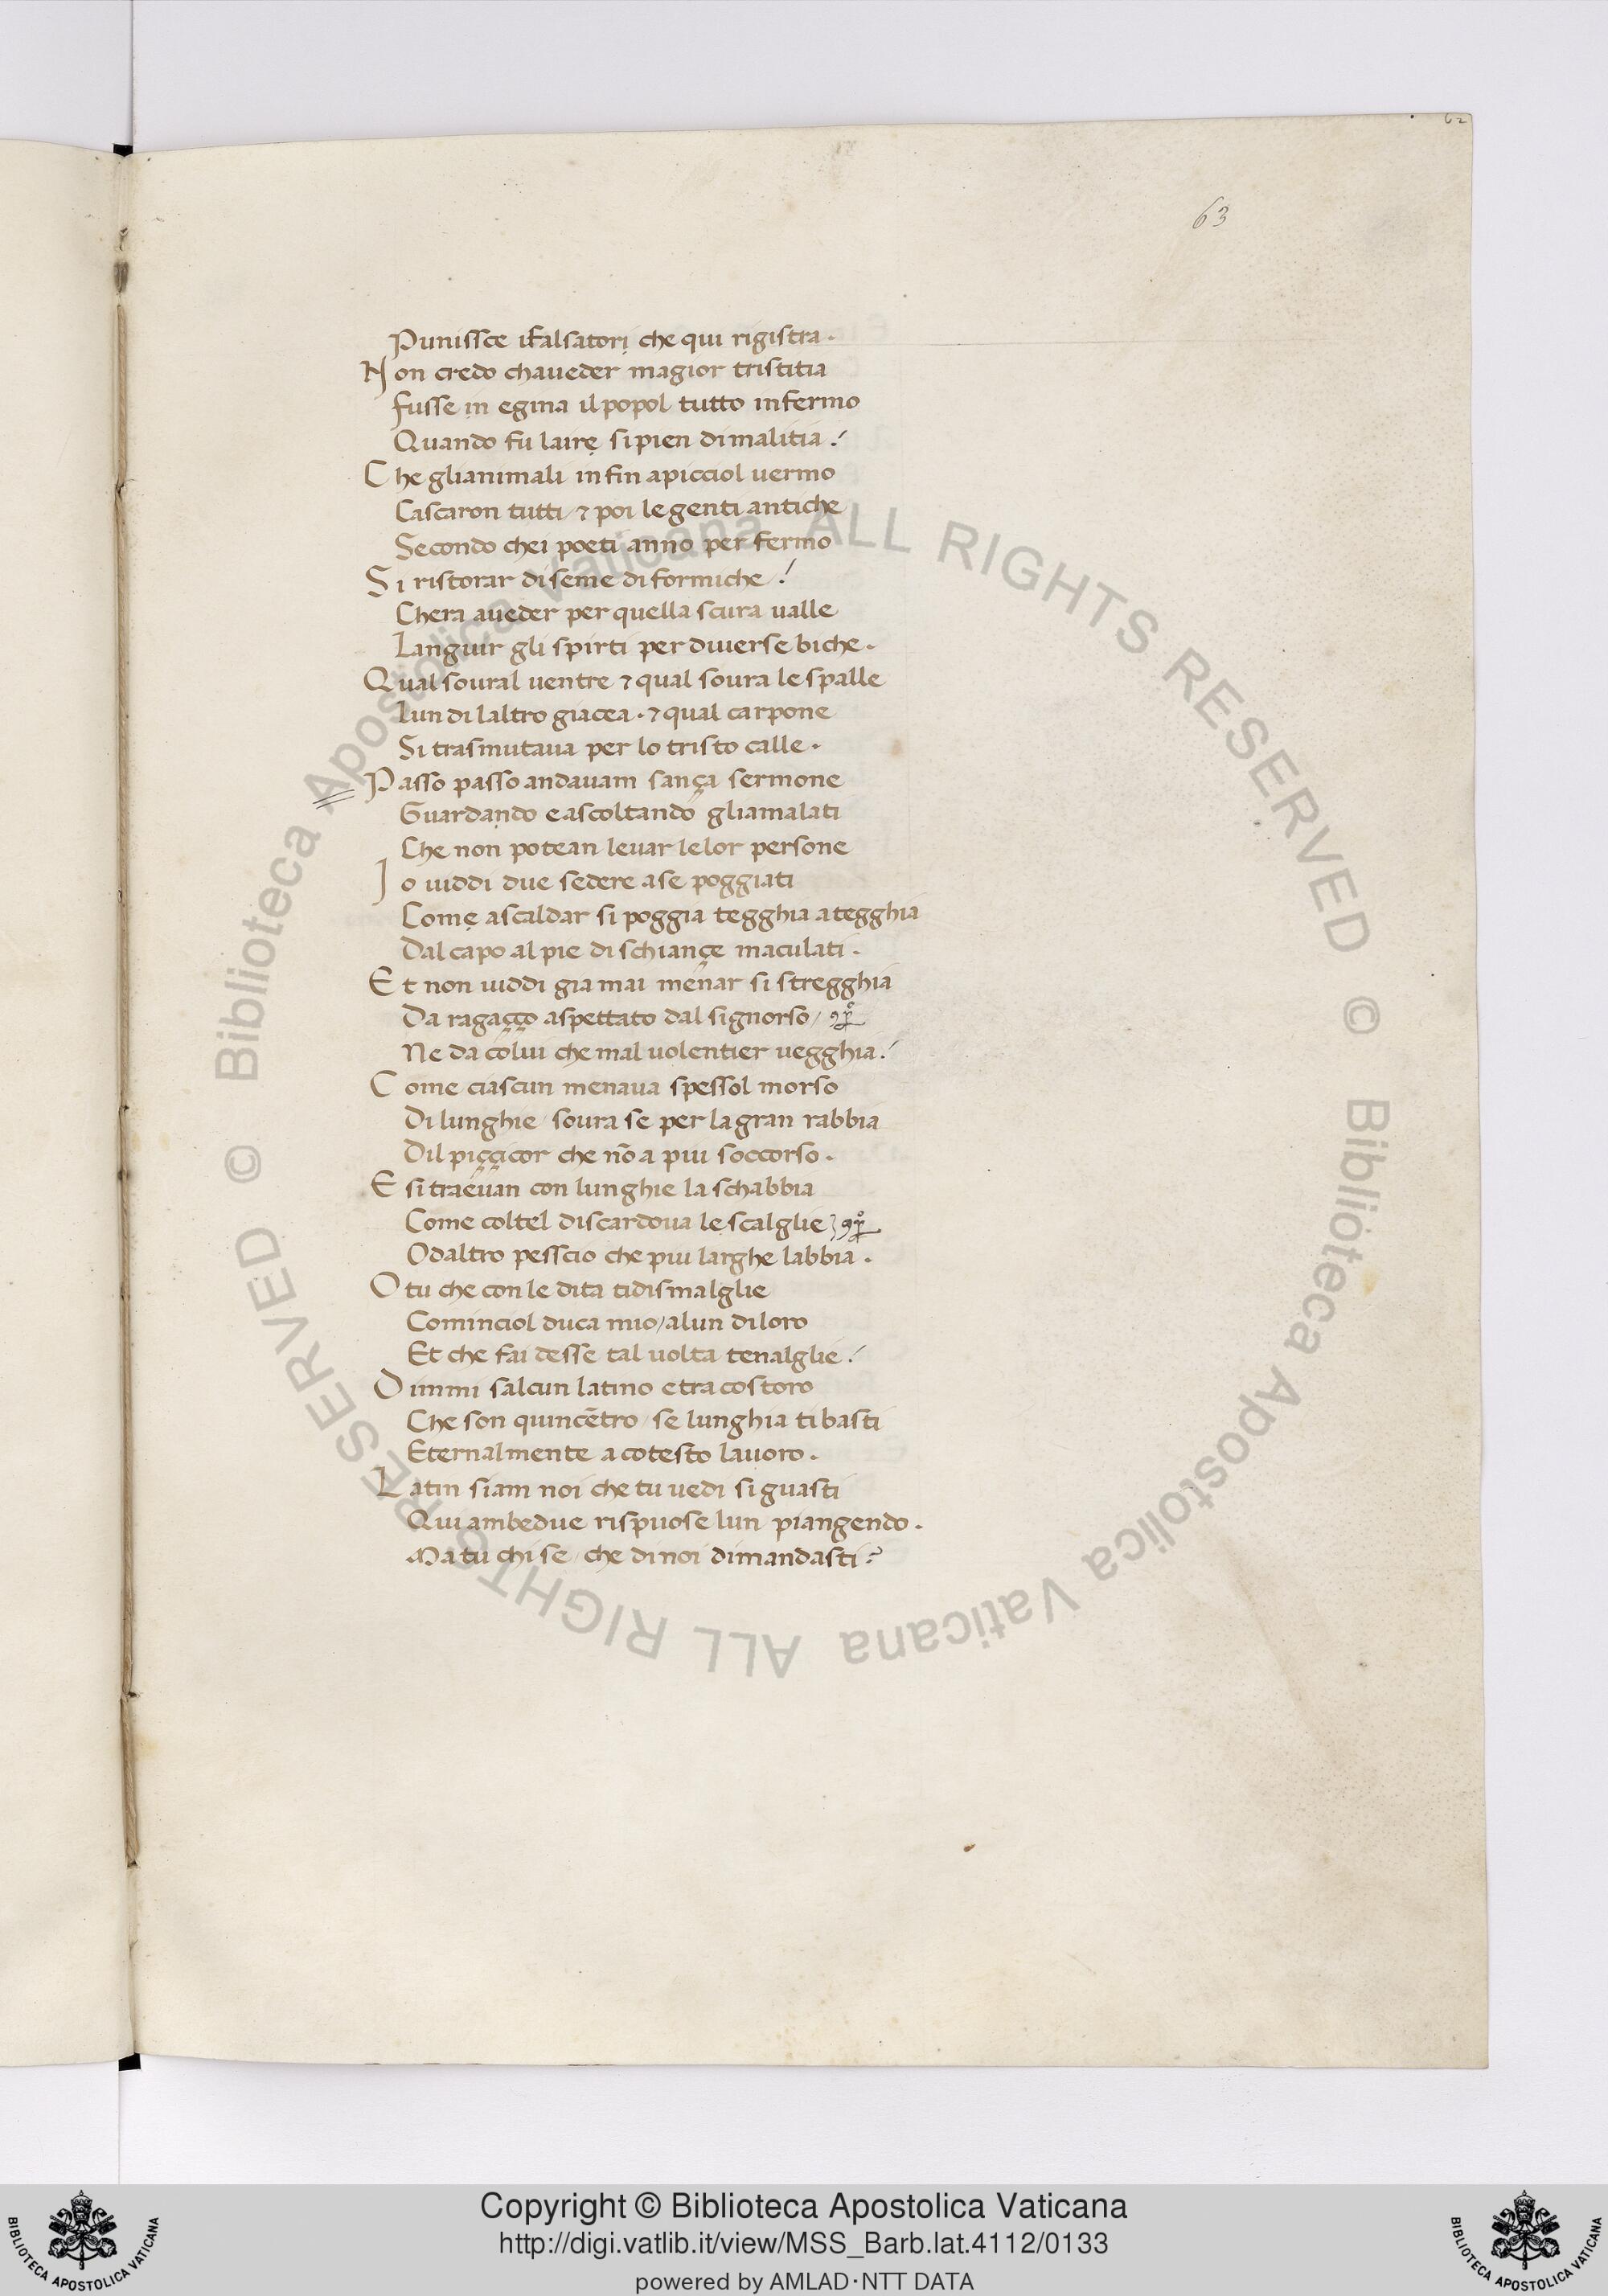 62
63
Punissce ifalsatori che qui rigistra.
Non credo chaueder magior tristitia
fusse in egina il popol tutto infermo
Quando fu laire si pien di malitia!
Che glianimali infin apicciol uermo
Cascaron tutti / ⁊ poi le genti antiche
Secondo chei poeti anno per fermo
Si ristorar di seme di formiche!
Chera aueder per quella scura ualle
Languir gli spirti per diuerse biche.
Qual soural uentre ⁊ qual soura le spalle
Lun di laltro giacea. ⁊ qual carpone
Si trasmutaua per lo tristo calle.
Passo passo andauam sança sermone
Guardando e ascoltando gliamalati
Che non potean leuar le lor persone
Io uiddi due sedere ase poggiati
Come ascaldar si poggia tegghia a tegghia
Dal capo al pie di schiançe maculati.
Et non uiddi gia mai menar si stregghia
Da ragaçço aspettato dal signorso /
Ne da colui che mal uolentier uegghia!
Come ciascun menaua spessol morso
Di lunghie / soura se per la gran rabbia
Dil piççicor che nō a piu soccorso.
E si traeuan con lunghie la schabbia
Come coltel di scardoua le scalglie
O daltro pesscio che piu larghe labbia.
O tu che con le dita ti dismalglie
Cominciol duca mio / alun di loro
Et che fai desse tal uolta tenalglie!
Dimmi salcun latino e tra costoro
Che son quincētro / se lunghia ti basti
Eternalmente a cotesto lauoro.
Latin siam noi che tu uedi si guasti
Qui ambedue rispuose lun piangendo.
Ma tu chi se / che di noi dimandasti?
© Biblioteca Apostolica Vaticana ALL RIGHTS RESERVED © Biblioteca Apostolica Vaticana ALL RIGHTS RESERVED
Copyright © Biblioteca Apostolica Vaticana
http://digi.vatlib.it/view/MSS_Barb.lat.4112/0133
powered by AMLAD·NTT DATA
BIBLIOTECA APOSTOLICA VATICANA
BIBLIOTECA APOSTOLICA VATICANA